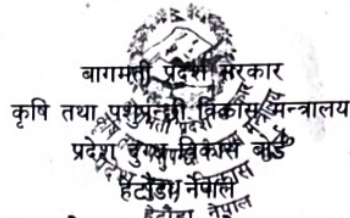 बागमती प्रदेश सरकार
कृषि तथा पशुपन्छी विकास मन्त्रालय
प्रदेश दुग्ध विकास बोर्ड
हेटौंडा, नेपाल
हेटौंडा, नेपाल